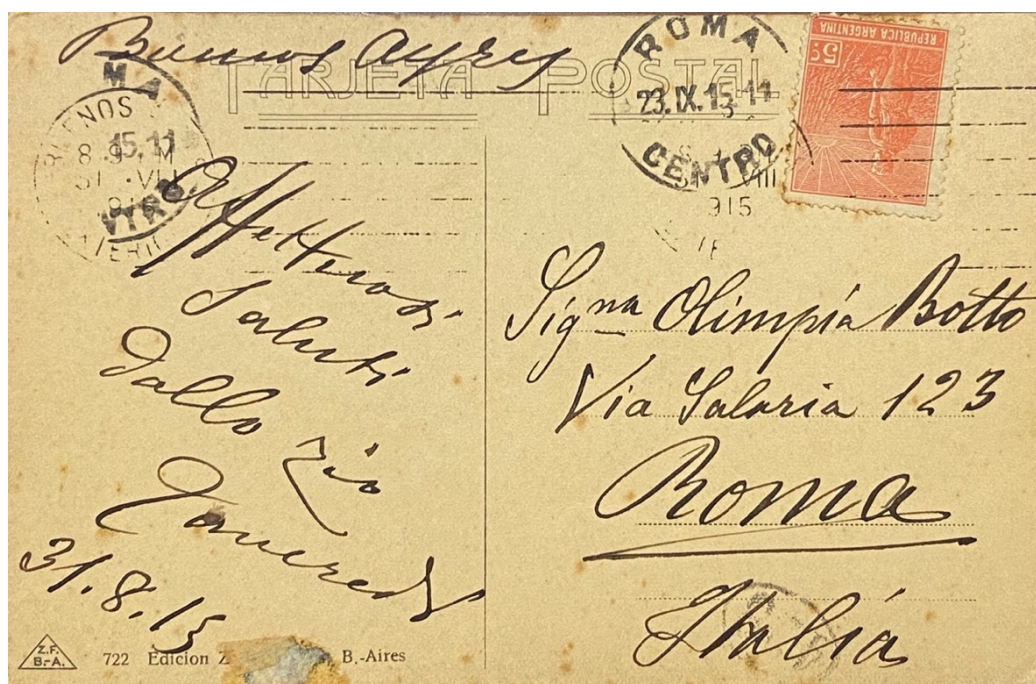 Buenos Ayres
TARJETA POSTAL
ROMA
23.IX.15-11
CENTRO
REPUBLICA ARGENTINA
5c
MA
BUENOS
15.11
8.9 M
31 VIII
NTRO
31 VIII
915
Affettuosi
saluti
dallo zio
31.8.15
Signa Olimpia Botto
Via Salaria 123
Roma
Italia
Z.F.
B.-A.
722 Edicion Z B.-Aires